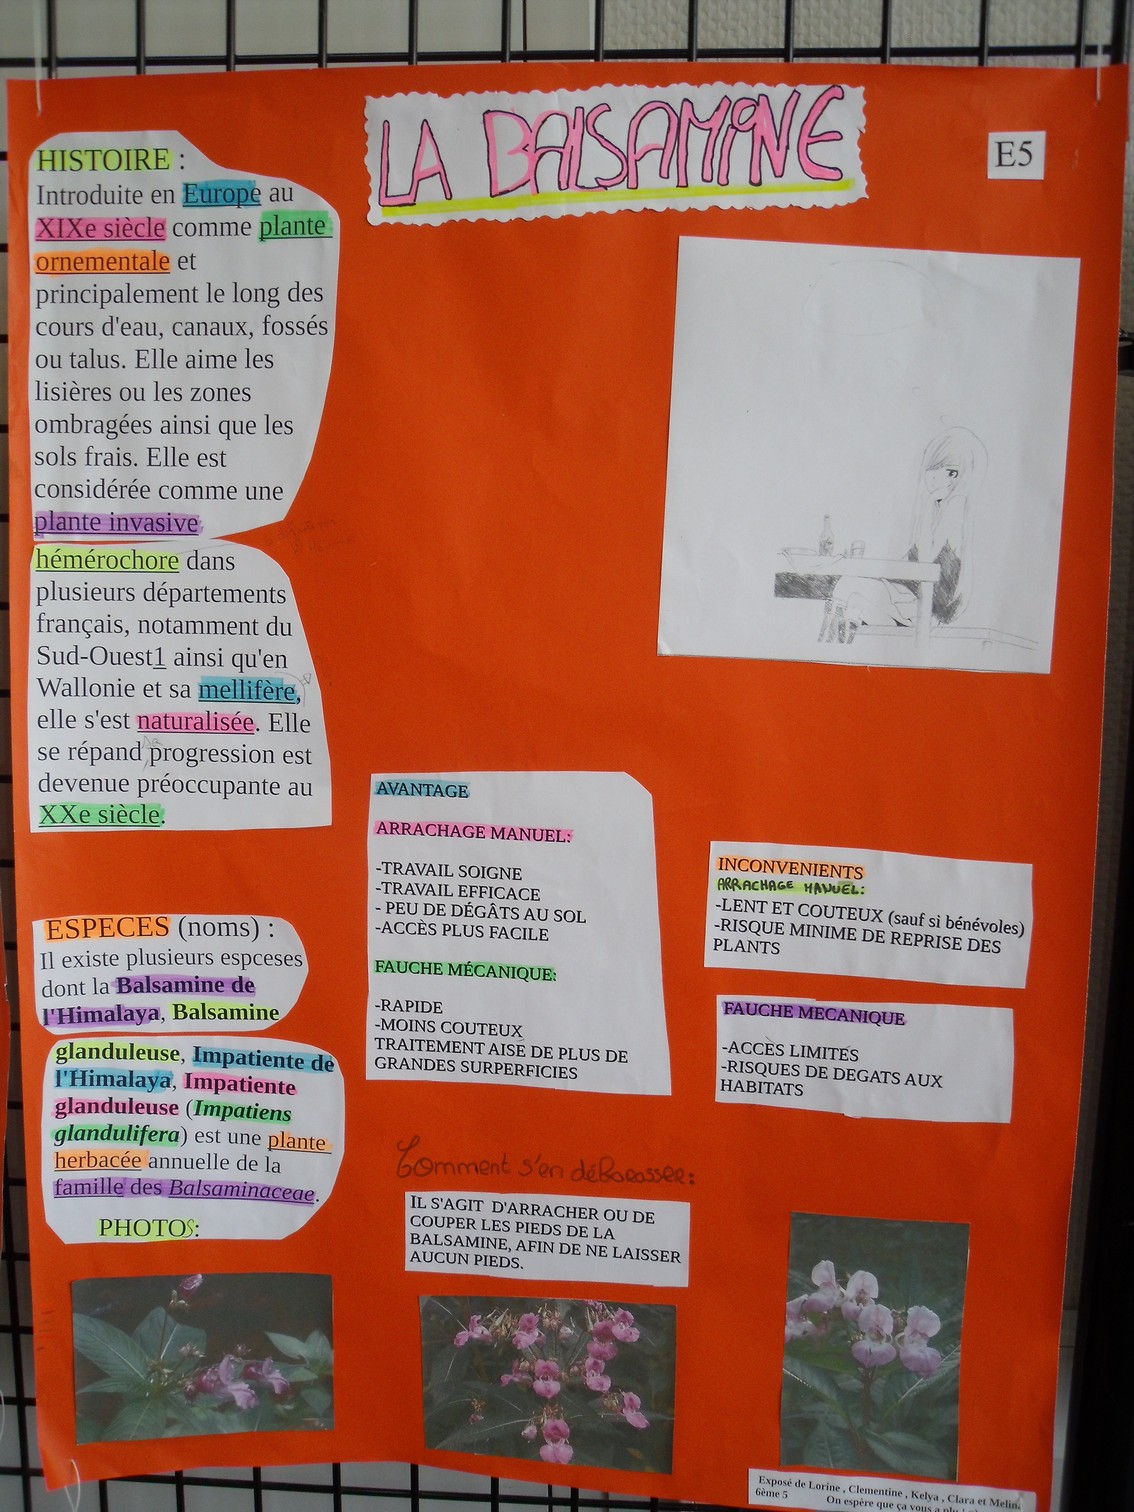 LA BALSAMINE
E5
HISTOIRE :
Introduite en Europe au
XIXe siècle comme plante
ornementale et
principalement le long des
cours d'eau, canaux, fossés
ou talus. Elle aime les
lisières ou les zones
ombragées ainsi que les
sols frais. Elle est
considérée comme une
plante invasive
hémérochore dans
plusieurs départements
français, notamment du
Sud-Ouest1 ainsi qu'en
Wallonie et sa mellifère,
elle s'est naturalisée. Elle
se répand sa progression est
devenue préoccupante au
XXe siècle.
ESPECES (noms) :
Il existe plusieurs espceses
dont la Balsamine de
l'Himalaya, Balsamine
glanduleuse, Impatiente de
l'Himalaya, Impatiente
glanduleuse (Impatiens
glandulifera) est une plante
herbacée annuelle de la
famille des Balsaminaceae.
PHOTOS:
AVANTAGE
ARRACHAGE MANUEL:
-TRAVAIL SOIGNE
-TRAVAIL EFFICACE
- PEU DE DÉGÂTS AU SOL
-ACCÈS PLUS FACILE
FAUCHE MÉCANIQUE:
-RAPIDE
-MOINS COUTEUX
TRAITEMENT AISÉ DE PLUS DE
GRANDES SURPERFICIES
INCONVENIENTS
ARRACHAGE MANUEL:
-LENT ET COUTEUX (sauf si bénévoles)
-RISQUE MINIME DE REPRISE DES
PLANTS
FAUCHE MECANIQUE
-ACCÈS LIMITÉS
-RISQUES DE DEGATS AUX
HABITATS
Comment s'en débarasser:
IL S'AGIT D'ARRACHER OU DE
COUPER LES PIEDS DE LA
BALSAMINE, AFIN DE NE LAISSER
AUCUN PIEDS.
Exposé de Lorine , Clementine , Kelya , Clara et Melina
6ème 5
On espère que ça vous a plu